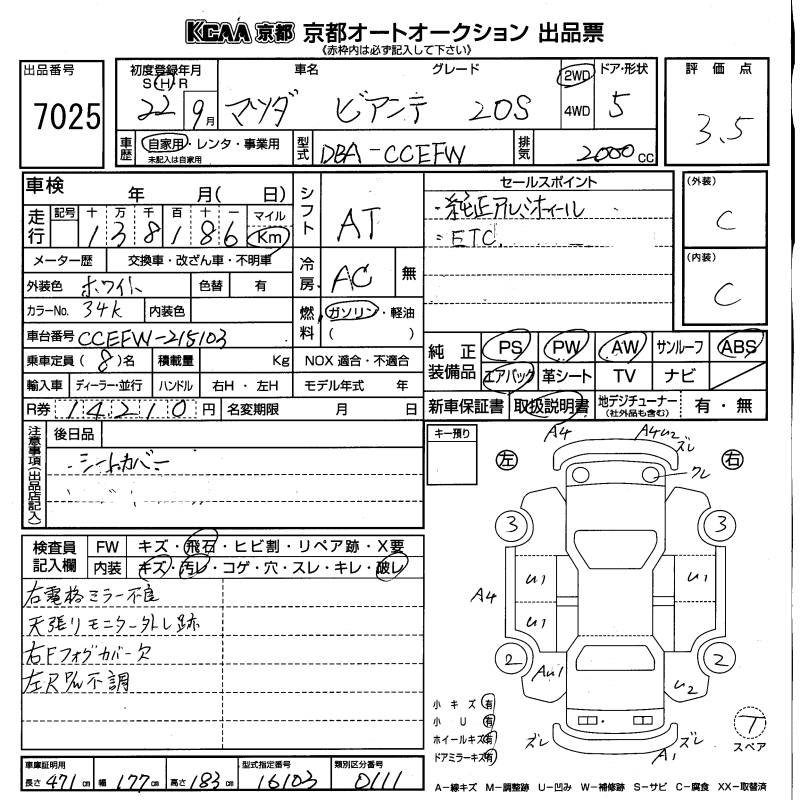 KCAA 京都 京都オートオークション 出品票
《赤枠内は必ず記入して下さい》
出品番号
7025
初度登録年月
S H R
22 9月
車名
マツダ ビアンテ
グレード
20S
2WD
4WD
ドア・形状
5
評価点
3.5
車歴
自家用・レンタ・事業用
未記入は自家用
型式
DBA-CCEFW
排気
2000cc
車検 年 月( 日)
走行
記号 十 万 千 百 十 一 マイル
138186 Km
シフト
AT
メーター歴 交換車・改ざん車・不明車
冷房
AC 無
外装色 ホワイト 色替 有
カラーNo. 34K 内装色
燃料
ガソリン・軽油
( )
車台番号 CCEFW-215103
乗車定員 (8)名 積載量 Kg NOX 適合・不適合
輸入車 ディーラー・並行 ハンドル 右H・左H モデル年式 年
R券 14210円 名変期限 月 日
セールスポイント
・純正アルミホイール
・ETC
(外装)
C
(内装)
C
純正装備品
PS PW AW サンルーフ ABS
エアバック 革シート TV ナビ
新車保証書 取扱説明書 地デジチューナー (社外品も含む) 有・無
注意事項(出品店記入)
後日品
・シートカバー
キー預り
左 右
A4 A4U2 ズレ
クレ
3 3
U1 U1
A4
U1
2 2
AU1 U2
ズレ A1 ズレ
小キズ 有
小U 有
ホイールキズ 有
ドアミラーキズ 有
T
スペア
検査員記入欄
FW キズ・飛石・ヒビ割・リペア跡・X要
内装 キズ・汚レ・コゲ・穴・スレ・キレ・破レ
右電格ミラー不良
天張りモニター外し跡
右Fフォグカバー欠
車庫証明用
長さ 471cm 幅 177cm 高さ 183cm
型式指定番号
16103
類別区分番号
0111
A-線キズ M-調整跡 U-凹み W-補修跡 S-サビ C-腐食 XX-取替済